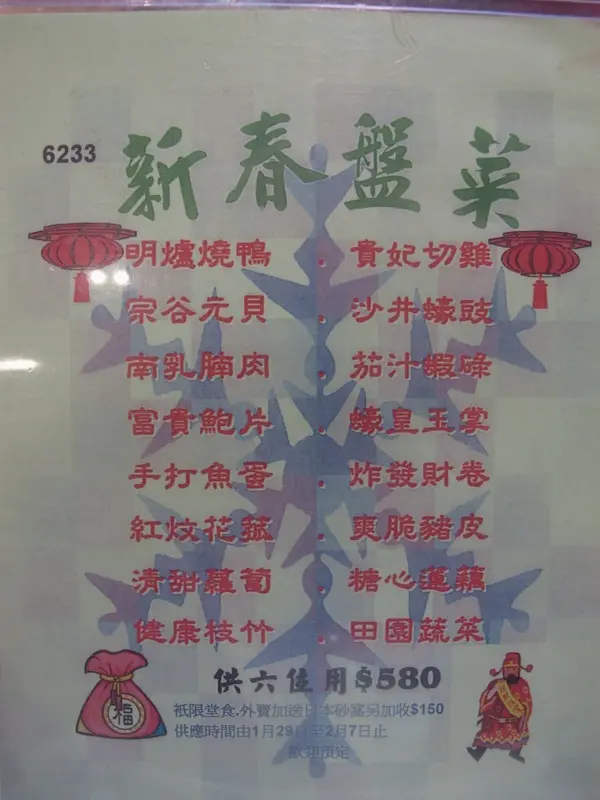 6233
新春盤菜
明爐燒鴨 . 貴妃切雞
宗谷元貝 . 沙井蠔豉
南乳腩肉 . 茄汁蝦碌
富貴鮑片 . 蠔皇玉掌
手打魚蛋 . 炸發財卷
紅炆花菰 . 爽脆豬皮
清甜蘿蔔 . 糖心蓮藕
健康枝竹 . 田園蔬菜
供六位用$580
祇限堂食.外賣加送日本砂窩另加收$150
供應時間由1月29日至2月7日止
歡迎預定
福